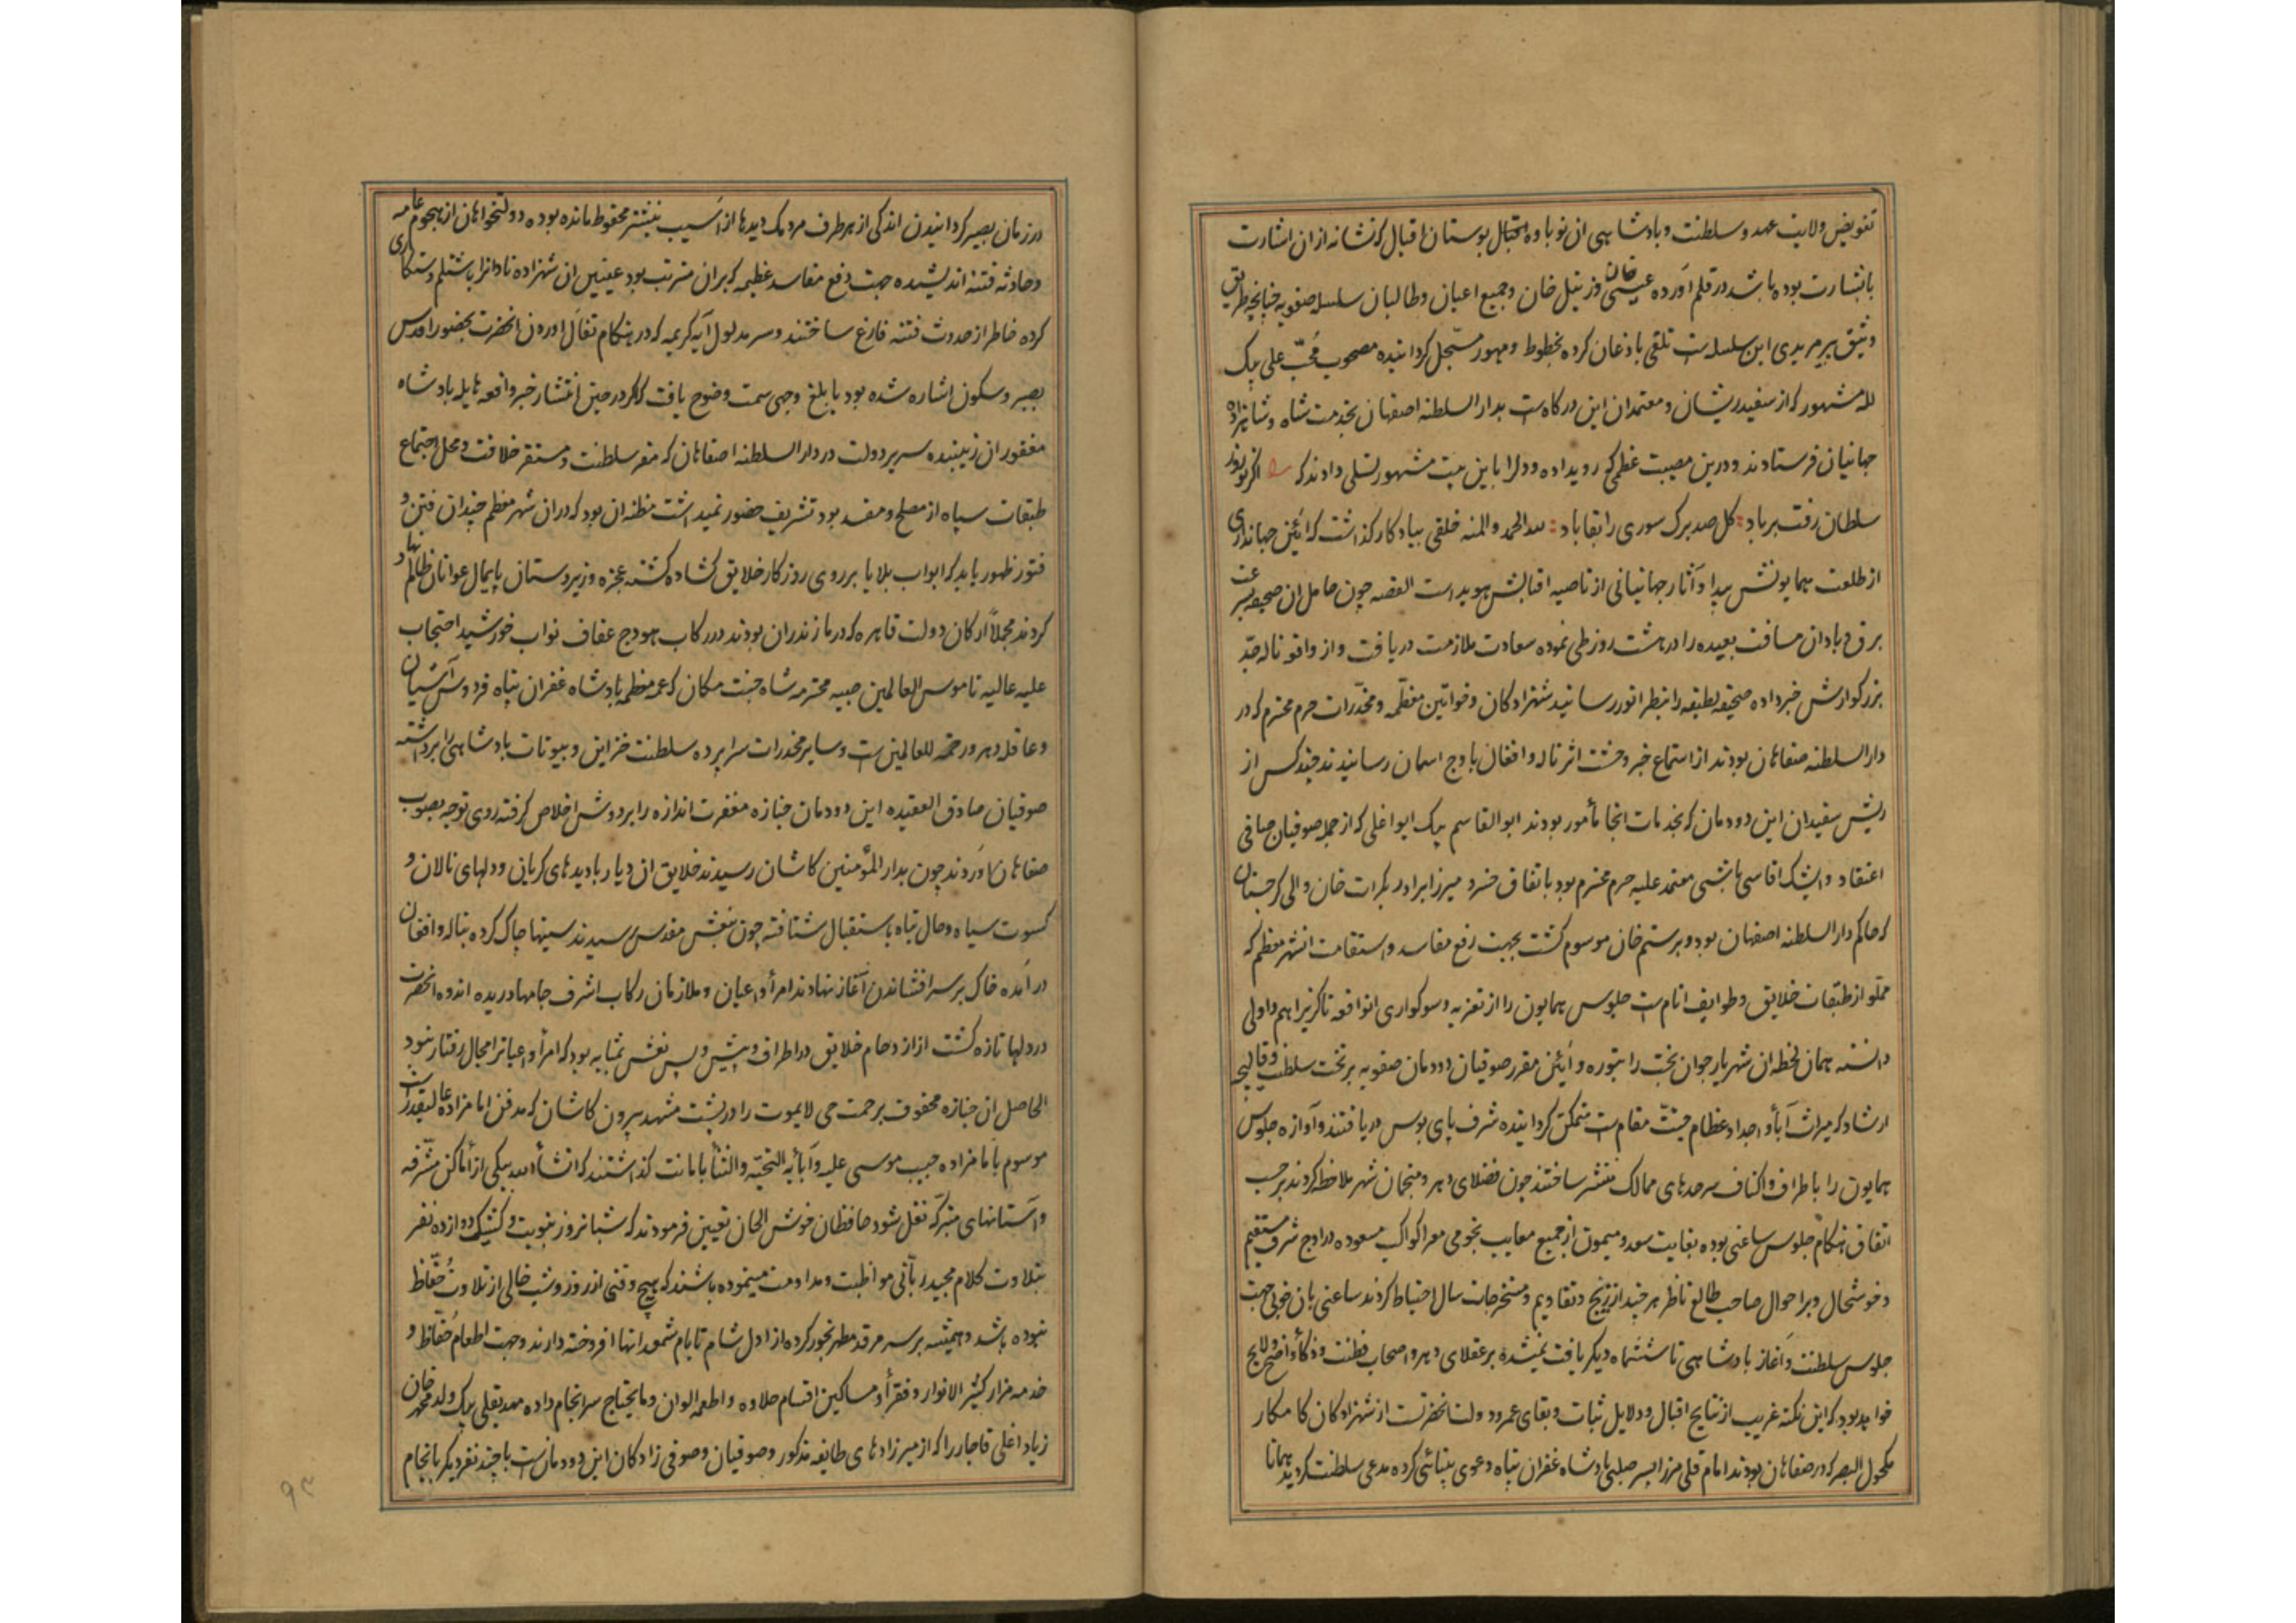 تفویض ولایت عهد و سلطنت و پادشاهی ان نوباوه اقبال بوستان اقبال که نشانه از ان اشارت
با بشارت بوده باشد در قلم آورده عیسی خان و زینل خان و جمیع اعیان و طالبان سلسله صفویه چنانچه طریق
وثیق پیر مریدی این سلسله است تلقی باذعان کرده بخطوط و مهور مسجل کردانیده مصحوب محب علی بیک
لله مشهور که از سفیدریشان و معتمدان این درکاه است بدار السلطنه اصفهان بخدمت شاه و شاهزاده
جهانیان فرستادند و درین مصیبت عظمی که رویداده و دلرا باین بیت مشهور تسلی دادند که اکر نوروز
سلطان رفت بر باد کل صد برک سوری را بقا باد لله الحمد والمنه خلقی بیادکار کذاشت که آئین جهانداری
از طلعت همایونش پیدا و آثار جهانبانی از ناصیه اقبالش هویداست القصه چون حامل ان صحیفه بسرعت
برق و باد ان مسافت بعیده را در هشت روز طی نموده سعادت ملازمت دریافت و از واقعه ناله جد
بزرکوارش خبر داده صحیفه لطیفه را بنظر انور رسانید شهزادکان و خواتین معظمه و مخدرات حرم محترم که در
دار السلطنه صفاهان بودند از استماع خبر وحشت اثر ناله و افغان باوج اسمان رسانیدند چند کس از
ریش سفیدان این دودمان که بخدمات انجا مأمور بودند ابوالقاسم بیک ایواغلی که از جمله صوفیان صافی
اعتقاد و ایشک اقاسی باشی معتمد علیه حرم محترم بود باتفاق خسرو میرزا برادر بکرات خان والی کرجستان
که حاکم دار السلطنه اصفهان بود و برستم خان موسوم کشت بجهت رفع مفاسد و استقامت انشهر معظم که
مملو از طبقات خلایق و طوایف انام است جلوس همایون را از تعزیه و سوکواری انواقعه ناکزیر اهم و اولی
دانسته همان لحظه ان شهریار جوان بخت را بتوره و آئین مقرر صوفیان دودمان صفویه بر تخت سلطنت و قالیچه
ارشاد که میراث آبا و اجداد عظام جنت مقام است متمکن کردانیده شرف پای بوس دریافتند و آوازه جلوس
همایون را باطراف و اکناف سرحدهای ممالک منتشر ساختند چون فضلای دهر و منجمان شهر ملاحظه کردند برحسب
اتفاق هنکام جلوس ساعتی بوده بغایت سعد و میمون از جمیع معایب نجومی معرا کواکب مسعوده در اوج شرف مستقیم
و خوشحال و بر احوال صاحب طالع ناظر هر چند از زیج و تقاویم و مستخرجات سال احتیاط کردند ساعتی بان خوبی جهت
جلوس سلطنت و آغاز پادشاهی تا ششماه دیکر یافت نمیشده بر عقلای دهر و اصحاب فطنت و ذکأ واضح و لایح
خواهد بود که این نکته غریب از نتایج اقبال و دلایل ثبات و بقای عمر و دولت انحضرتست از شهزادکان کامکار
مکحول البصر که در صفاهان بودند امام قلی میرزا پسر صلبی پادشاه غفران پناه دعوی بینائی کرده مدعی سلطنت کردید همانا
در زمان بصیر کردانیدن اندکی از هر طرف مردمک دیدها از آسیب نیشتر محفوظ مانده بوده دولتخواهان از هجوم عامه
و حادثه فتنه اندیشیده جهت دفع مفاسد عظیمه که بران مترتب بود عینین ان شهزاده نادانرا باشتلم و ستمکاری
کرده خاطر از حدوث فتنه فارغ ساختند و سر مدلول آیه کریمه که در هنکام تفأل اوردن انحضرت بحضور اقدس
بصبر و سکون اشاره شده بود بابلغ وجهی سمت وضوح یافت که اکر در حین انتشار خبر واقعه هایله پادشاه
مغفور ان زیبنده سریر دولت در دار السلطنه اصفاهان که مقر سلطنت و مستقر خلافت و محل اجتماع
طبقات سپاه از مصلح و مفسد بود تشریف حضور نمیداشت مظنه ان بود که دران شهر معظم چندان فتن و
فتور ظهور یابد که ابواب بلایا بر روی روزکار خلایق کشاده کشته عجزه و زیردستان پایمال عوانان ظالم نهاد
کردند مجملا ارکان دولت قاهره که در مازندران بودند در رکاب هودج عفاف نواب خورشید احتجاب
علیه عالیه ناموس العالمین صبیه محترمه شاه جنت مکان که عمه معظمه پادشاه غفران پناه فردوس آشیان
و عاقله دهر و رحمة للعالمین است و سایر مخدرات سراپرده سلطنت خزاین و بیوتات پادشاهی را برداشته
صوفیان صادق العقیده این دودمان جنازه مغفرت اندازه را بر دوش اخلاص کرفته روی توجه بصوب
صفاهان آوردند چون بدار المؤمنین کاشان رسیدند خلایق ان دیار با دیدهای کریان و دلهای نالان و
کسوت سیاه و حال تباه باستقبال شتافته چون بنعش مقدس رسیدند سینها چاک کرده بناله و افغان
درآمده خاک بر سر افشاندن آغاز نهادند امرأ و اعیان و ملازمان رکاب اشرف جامها دریده اندوه انحضرت
در دلها تازه کشت از ازدحام خلایق در اطراف و پیش و پس نعش بمثابه بود که امرأ و اعیانرا مجال رفتار نبود
الحاصل ان جنازه محفوف برحمت حی لایموت را در پشت مشهد بیرون کاشان که مدفن امامزاده عالیقدر است
موسوم بامامزاده حبیب موسی علیه و آبائه التحیه والثنأ بامانت کذاشتند که انشأ الله بیکی از اماکن مشرفه
و آستانهای متبرکه نقل شود حافظان خوش الحان تعیین فرمودند که شبانروز بنوبت و کشیک دوازده نفر
بتلاوت کلام مجید ربانی مواظبت و مداومت مینموده باشند که هیچ وقتی از روز و شب خالی از تلاوت حفاظ
نبوده باشد و همیشه بر سر مرقد مطهر بخور کرده از اول شام تا بام شمعدانها افروخته دارند و جهت اطعام حفاظ و
خدمه مزار کثیر الانوار و فقرأ و مساکین اقسام حلاوه و اطعمه الوان و مایحتاج سرانجام داده مهدیقلی بیک ولد محمد خان
زیاد اغلی قاجار را که از میرزادهای طایفه مذکور و صوفیان و صوفی زادکان این دودمان است با چند نفر دیکر بانجام
۹۳